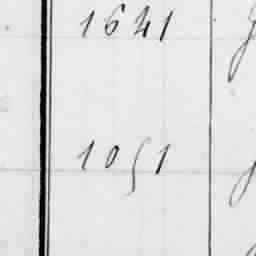 1641
1051